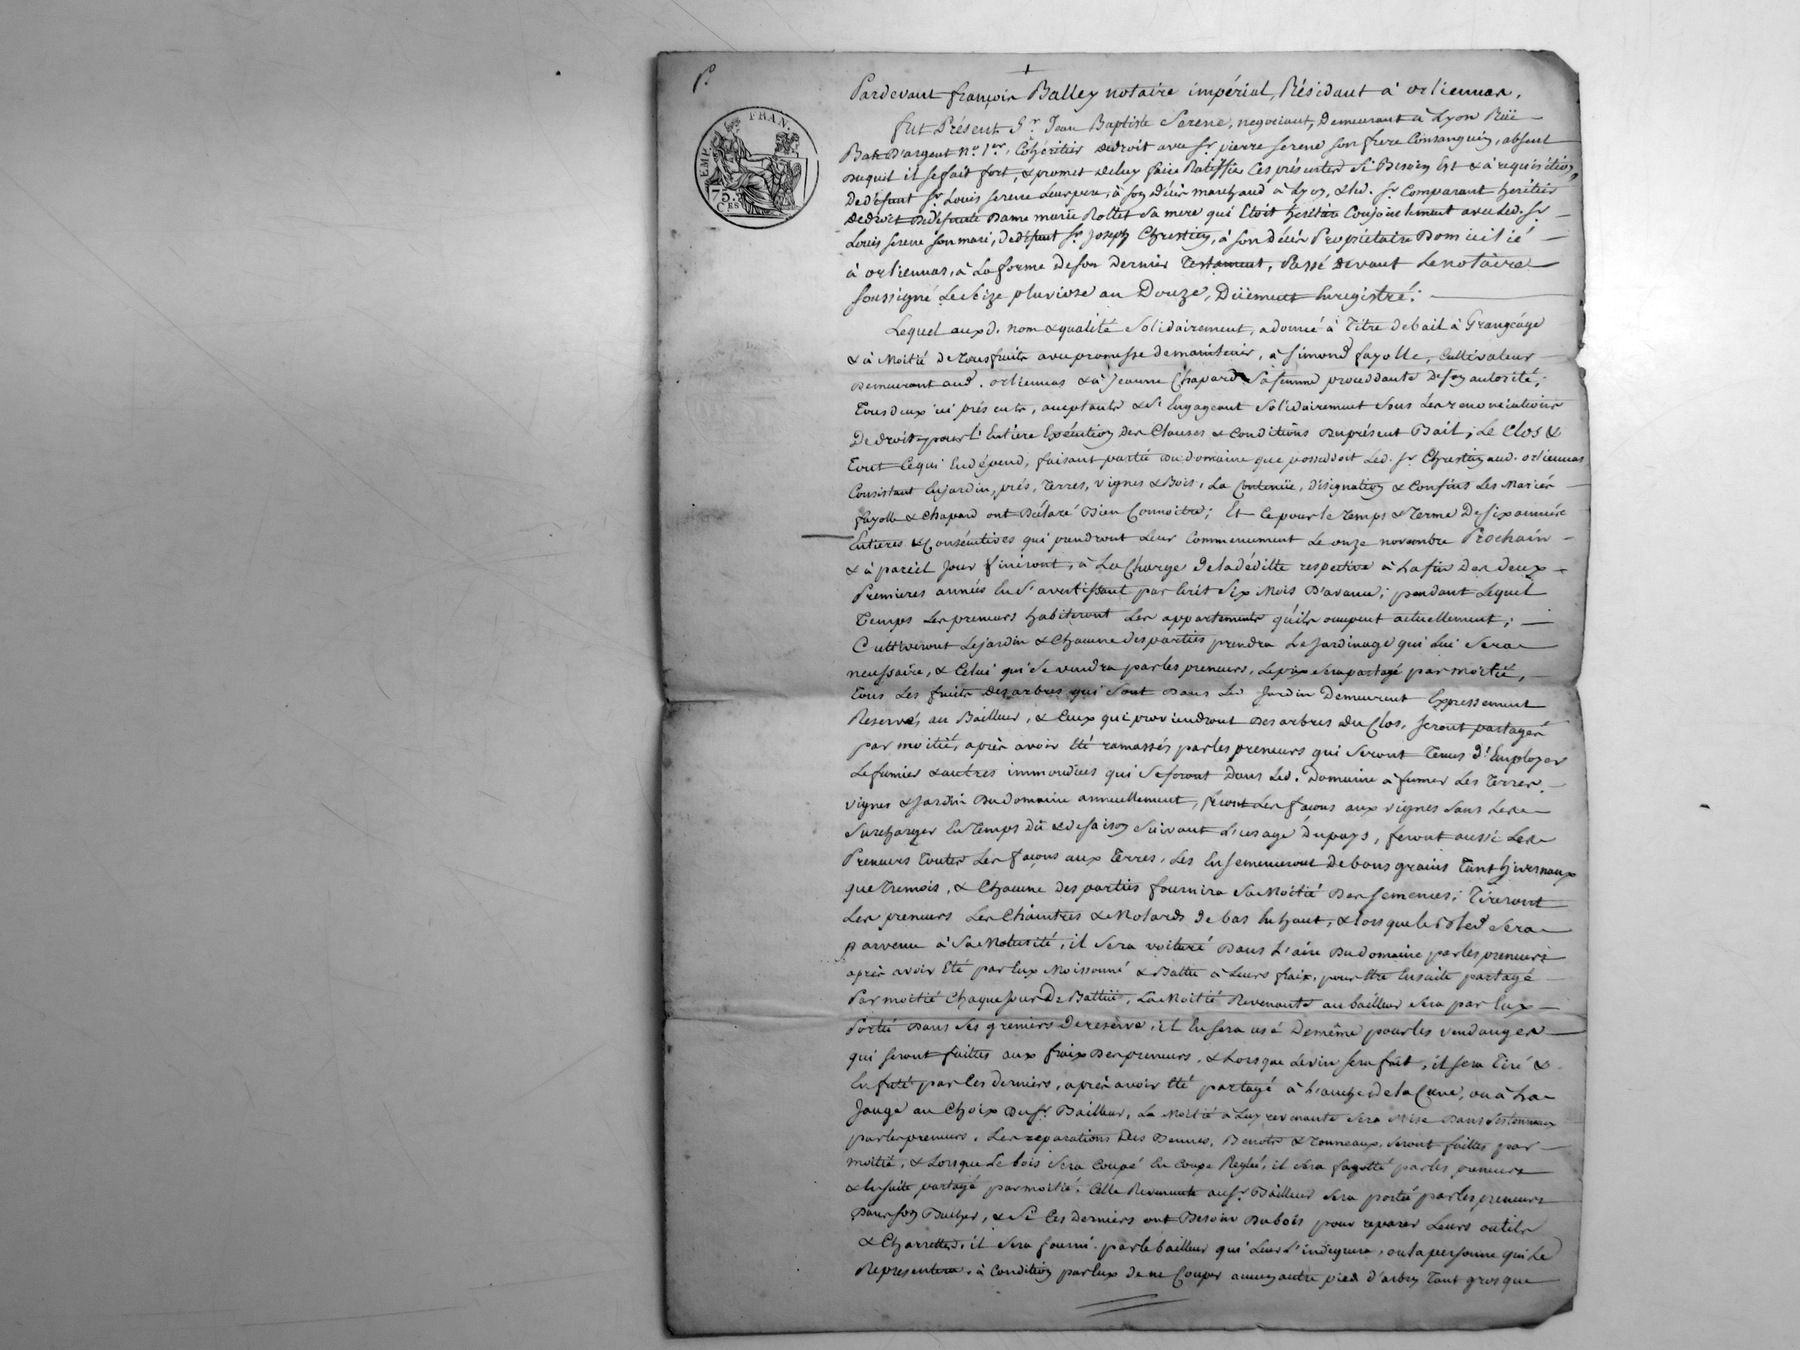 P.
EMP. FRAN.
75. CES
Pardevant françois Balley notaire impérial, Résidant à orliennas,
fut Présent Sr. Jean Baptiste Serene, negociant, Demeurant à Lyon Rüe
Bat D'argent no. 1er., Cohéritier dedroit avec Sr. pierre serene son frere Consanguin, absent
duquel il se fait fort, & promet deluy faire Ratiffier Ces présentes Si Besoin Est & à requisition,
De défunt Sr. Louis serene Leur pere, à son décès marchand à Lyon, & led. Sr. Comparant heritier
dedroit De défunte Dame marie Rollet Sa mere qui Etoit heritiere Conjointement avec led. Sr.
Louis serene son mari, De défunt Sr. Joseph Chrestien, à son Décès Propriétaire Domicilié
à orliennas, à La forme de son Dernier Testament, Passé devant Le notaire
soussigné Le seize pluviose an Douze, Düement Enregistré.
Lequel auxd. nom & qualité Solidairement, a donné à Titre de bail à Grangéage
& à Moitié de Tous fruits avec promesse de maintenir, à Simond fayolle, Cultivateur
Demeurant aud. orliennas & à Jeanne Chapard Sa femme procedante De son autorité,
Tous deux ici présents, acceptants & S'Engageant Solidairement Sous Les renonciations
De droit, pour l'Entiere Exécution Des Clauses & Conditions Du présent Bail; Le Clos &
Tout Ce qui En dépend, faisant partie du domaine que possedoit Led. Sr. Chrestien aud. orliennas
Consistant En jardin, prés, Terres, vignes & Bois, La Contenüe, désignation & Confins Les Mariés
fayolle & Chapard ont Déclaré Bien Connoitre; Et Ce pour le Temps & Terme De six années
Entieres & Consécutives qui prendront Leur Commencement Le onze novembre Prochain
& à pareil Jour finiront, à La Charge de la dédite respective à La fin Des deux
Premieres années En S'avertissant par Ecrit Six Mois D'avance; pendant Lequel
Temps Les preneurs habiteront Les appartements qu'ils occupent actuellement;
Cultiveront Le jardin & Chacune des parties prendra Le Jardinage qui Lui Sera
necessaire, & Celui qui Se vendra par les preneurs, Le prix Sera partagé par moitié,
Tous Les fruits des arbres qui Sont Dans Led. Jardin Demeurent Expressement
Reservés au Bailleur, & Ceux qui proviendront Des arbres Du Clos, Seront partagés
par moitié, après avoir Eté ramassés par les preneurs qui Seront Tenus d'Employer
Le fumier & autres immondices qui Se feront Dans Led. Domaine à fumer Les Terres,
vignes & Jardin Du domaine annuellement, feront Les façons aux vignes Sans Les
Surcharger En Temps Dû & de saison Suivant L'usage du pays, feront aussi Les
Preneurs Toutes Les façons aux Terres, Les Ensemenceront De bons grains Tant hivernaux
que Tremois, & Chacune des parties fournira Sa Moitié Des semences; Tireront
Les preneurs Les Chaintres & Molards de bas En haut, & lorsque le bled Sera
parvenu à Sa Maturité, il Sera voituré Dans L'aire Du domaine par les preneurs
après avoir Eté par Eux Moissonné & Battu à Leurs fraix, pour Etre Ensuite partagé
Par moitié Chaque Jour De Battüe, La Moitié Revenante au bailleur Sera par Eux
Portée Dans Ses greniers De reserve, il En sera usé De même pour les vendanges
qui seront faittes aux fraix Des preneurs, & Lorsque Le vin sera fait, il sera Tiré &
Enfuté par Ces derniers, après avoir Eté partagé à L'anche de la Cuve, ou à La
Jauge au Choix Du Sr. Bailleur, La Moitié à Luy revenante Sera Mise Dans Ses tonneaux
par les preneurs. Les reparations Des Bennes, Benots & Tonneaux, Seront faittes par
moitié, & Lorsque Le bois Sera Coupé En Coupe Reglée, il Sera fagotté par les preneurs
& Ensuite partagé par moitié, Celle Revenante au Sr. Bailleur Sera portée par les preneurs
Dans son Bucher, & Si Ces Derniers ont Besoin Du bois pour reparer Leurs outils
& Charrettes, il Sera fourni par le bailleur qui Leur L'indiquera, ou la personne qui Le
Representera, à Condition par Eux de ne Couper aucun autre pied d'arbre Tant gros que